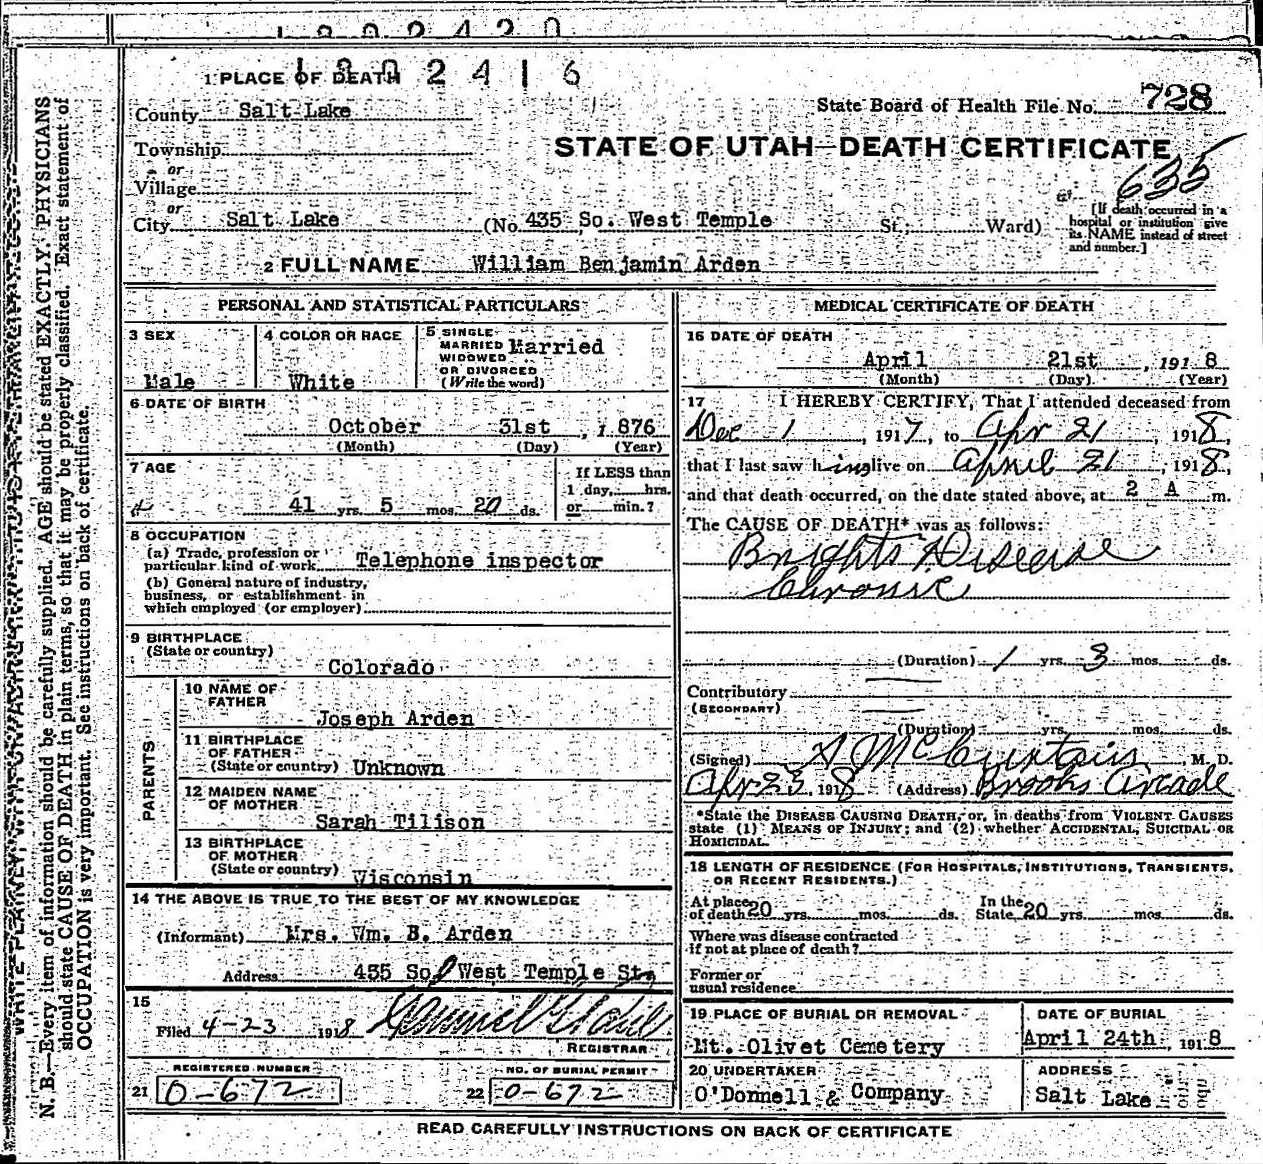 1802420
1802416
1 PLACE OF DEATH
County Salt Lake
State Board of Health File No. 728
Township
STATE OF UTAH—DEATH CERTIFICATE
or
Village
635
or
City Salt Lake (No. 435 So. West Temple St.; Ward)
[If death occurred in a
hospital or institution give
its NAME instead of street
and number.]
2 FULL NAME William Benjamin Arden
PERSONAL AND STATISTICAL PARTICULARS
3 SEX
Male
4 COLOR OR RACE
White
5 SINGLE
MARRIED
WIDOWED
OR DIVORCED
(Write the word)
Married
6 DATE OF BIRTH
October 31st, 1 876
(Month) (Day) (Year)
7 AGE
41 yrs. 5 mos. 20 ds.
If LESS than
1 day, hrs.
or min.?
8 OCCUPATION
(a) Trade, profession or
particular kind of work Telephone inspector
(b) General nature of industry,
business, or establishment in
which employed (or employer)
9 BIRTHPLACE
(State or country)
Colorado
PARENTS
10 NAME OF
FATHER
Joseph Arden
11 BIRTHPLACE
OF FATHER
(State or country) Unknown
12 MAIDEN NAME
OF MOTHER
Sarah Tilison
13 BIRTHPLACE
OF MOTHER
(State or country) Wisconsin
14 THE ABOVE IS TRUE TO THE BEST OF MY KNOWLEDGE
(Informant) Mrs. Wm. B. Arden
Address 435 So. West Temple St.
15
Filed 4-23 1918
REGISTRAR
REGISTERED NUMBER
21 0-672
NO. OF BURIAL PERMIT
22 0-672
MEDICAL CERTIFICATE OF DEATH
16 DATE OF DEATH
April 21st, 1918
(Month) (Day) (Year)
17 I HEREBY CERTIFY, That I attended deceased from
Dec 1, 1917, to Apr 21, 1918,
that I last saw him alive on April 21, 1918,
and that death occurred, on the date stated above, at 2 A m.
The CAUSE OF DEATH* was as follows:
Brights Disease
Chronic
(Duration) 1 yrs. 3 mos. ds.
Contributory
(SECONDARY)
(Duration) yrs. mos. ds.
(Signed) M. D.
Apr 23, 1918 (Address) Brooks Arcade
*State the DISEASE CAUSING DEATH, or, in deaths from VIOLENT CAUSES
state (1) MEANS OF INJURY; and (2) whether ACCIDENTAL, SUICIDAL OR
HOMICIDAL.
18 LENGTH OF RESIDENCE (FOR HOSPITALS, INSTITUTIONS, TRANSIENTS,
OR RECENT RESIDENTS.)
At place
of death 20 yrs. mos. ds.
In the
State 20 yrs. mos. ds.
Where was disease contracted
if not at place of death?
Former or
usual residence
19 PLACE OF BURIAL OR REMOVAL
Mt. Olivet Cemetery
DATE OF BURIAL
April 24th, 1918
20 UNDERTAKER
O'Donnell & Company
ADDRESS
Salt Lake
READ CAREFULLY INSTRUCTIONS ON BACK OF CERTIFICATE
N. B.—Every item of information should be carefully supplied. AGE should be stated EXACTLY. PHYSICIANS
should state CAUSE OF DEATH in plain terms, so that it may be properly classified. Exact statement of
OCCUPATION is very important. See instructions on back of certificate.